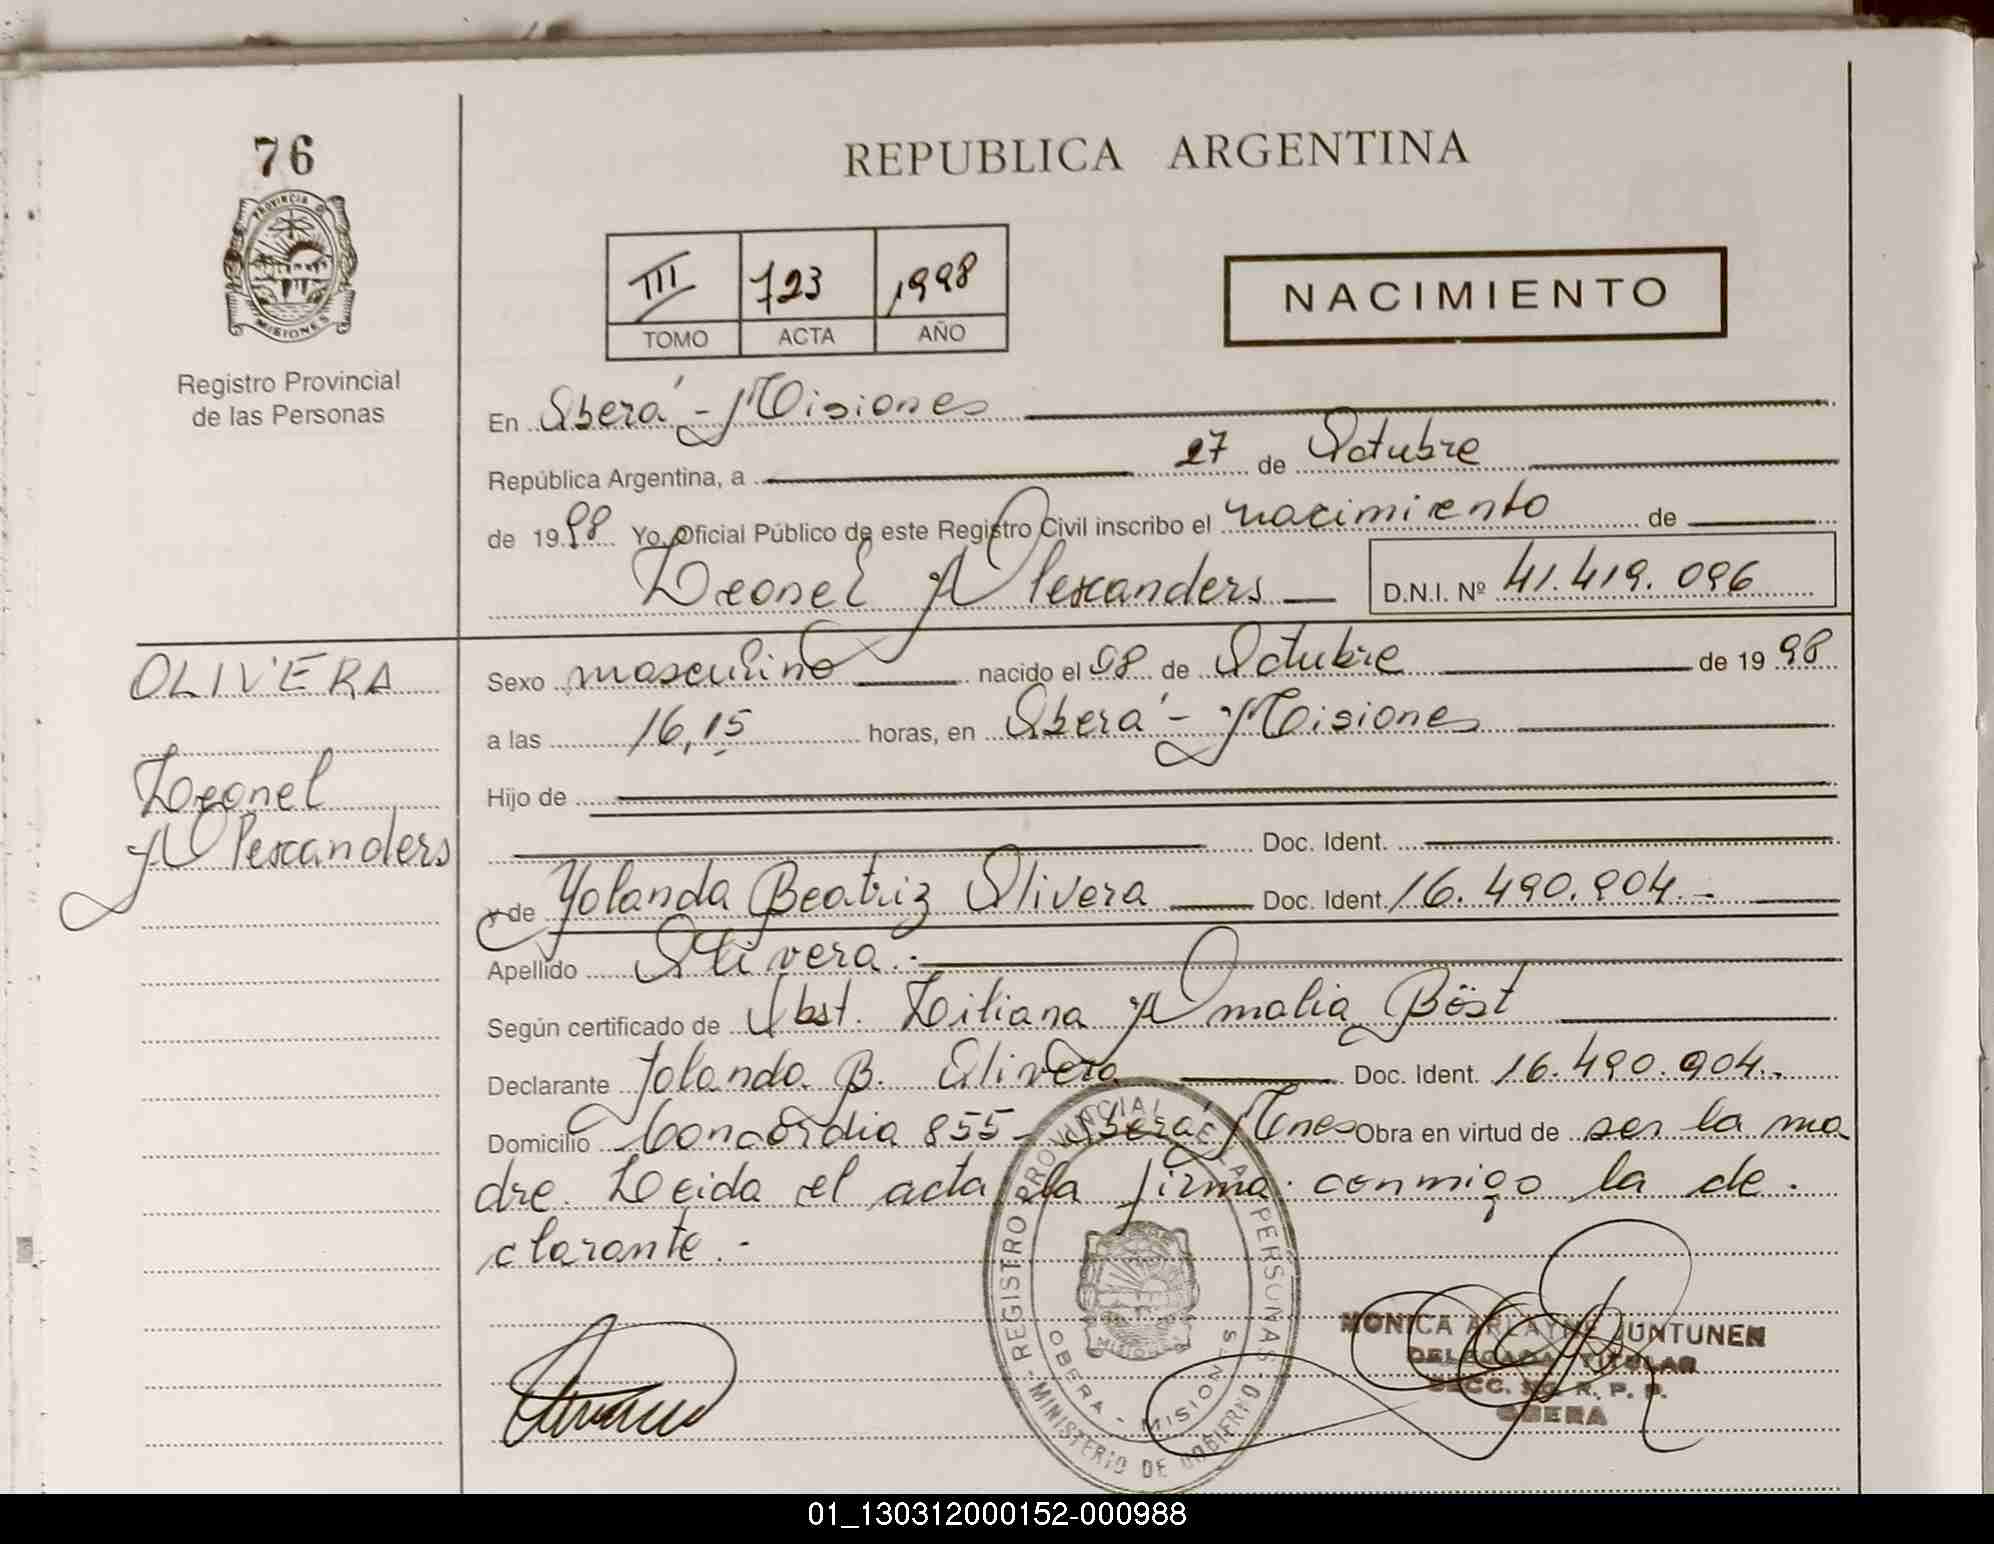 76
PROVINCIA D
MISIONES
Registro Provincial
de las Personas
REPUBLICA ARGENTINA
III 723 1998
TOMO ACTA AÑO
NACIMIENTO
En Oberá - Misiones
República Argentina, a 27 de Octubre
de 1998 Yo, Oficial Público de este Registro Civil inscribo el nacimiento de
Leonel Alexanders D.N.I. Nº 41.419.096
OLIVERA
Leonel
Alexanders
Sexo masculino nacido el 08 de Octubre de 1998
a las 16,15 horas, en Oberá - Misiones
Hijo de
Doc. Ident.
y de Yolanda Beatriz Olivera Doc. Ident. 16.490.904.-
Apellido Olivera.-
Según certificado de Obst. Liliana Amalia Böst
Declarante Yolanda B. Olivera Doc. Ident. 16.490.904.-
Domicilio Concordia 855 - Oberá Mnes Obra en virtud de ser la ma
dre. Leida el acta la firma conmigo la de
clarante.-
REGISTRO PROVINCIAL DE LAS PERSONAS
MINISTERIO DE GOBIERNO
OBERA - MISIONES
MISIONES
MONICA ARLAYNE JUNTUNEN
DELEGADA TITULAR
SECC. R. P. P.
OBERA
01_130312000152-000988